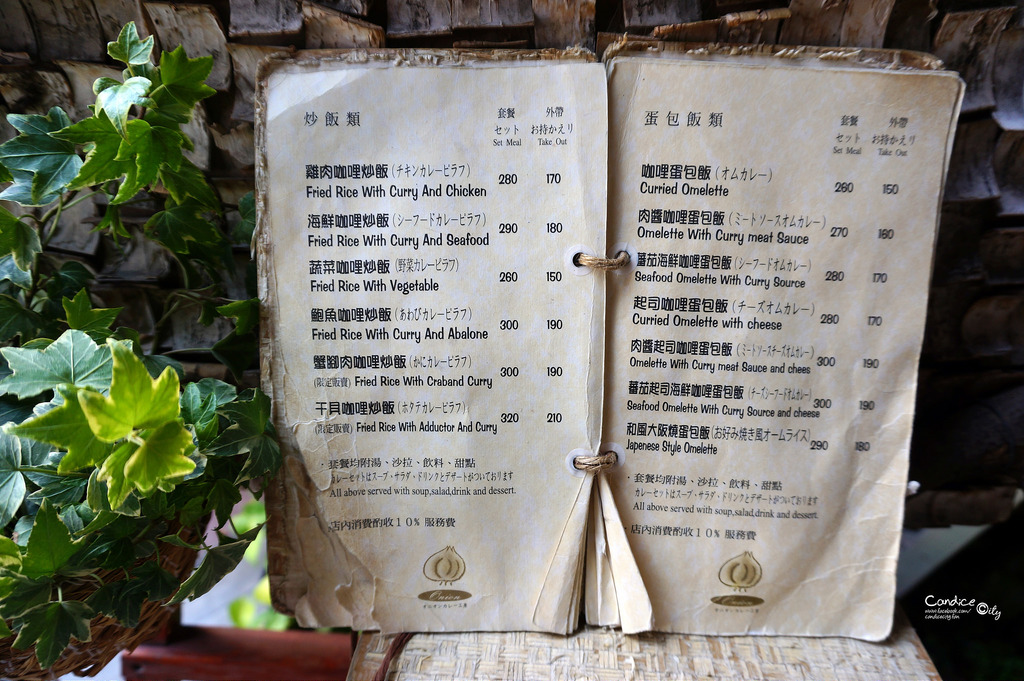 炒飯類
套餐 外帶
セット お持かえり
Set Meal Take Out
雞肉咖哩炒飯(チキンカレーピラフ)
Fried Rice With Curry And Chicken 280 170
海鮮咖哩炒飯(シーフードカレーピラフ)
Fried Rice With Curry And Seafood 290 180
蔬菜咖哩炒飯(野菜カレーピラフ)
Fried Rice With Vegetable 260 150
鮑魚咖哩炒飯(あわびカレーピラフ)
Fried Rice With Curry And Abalone 300 190
蟹腳肉咖哩炒飯(かにカレーピラフ)
(限定販賣) Fried Rice With Craband Curry 300 190
干貝咖哩炒飯(ホタテカレーピラフ)
(限定販賣) Fried Rice With Adductor And Curry 320 210
·套餐均附湯、沙拉、飲料、甜點
カレーセットはスープ・サラダ・ドリンクとデザートがついております
All above served with soup,salad,drink and dessert.
·店內消費酌收10% 服務費
Onion
オニオンカレー工房
蛋包飯類
套餐 外帶
セット お持かえり
Set Meal Take Out
咖哩蛋包飯(オムカレー)
Curried Omelette 260 150
肉醬咖哩蛋包飯(ミートソースオムカレー)
Omelette With Curry meat Sauce 270 160
蕃茄海鮮咖哩蛋包飯(シーフードオムカレー)
Seafood Omelette With Curry Source 280 170
起司咖哩蛋包飯(チーズオムカレー)
Curried Omelette with cheese 280 170
肉醬起司咖哩蛋包飯(ミートソースチーズオムカレー)
Omelette With Curry meat Sauce and chees 300 190
蕃茄起司海鮮咖哩蛋包飯(チーズシーフードオムカレー)
Seafood Omelette With Curry Source and cheese 300 190
和風大阪燒蛋包飯(お好み焼き風オームライス)
Japenese Style Omelette 290 180
·套餐均附湯、沙拉、飲料、甜點
カレーセットはスープ・サラダ・ドリンクとデザートがついております
All above served with soup,salad,drink and dessert.
·店內消費酌收10% 服務費
Candice City
www.facebook.com/
candicecity.fan